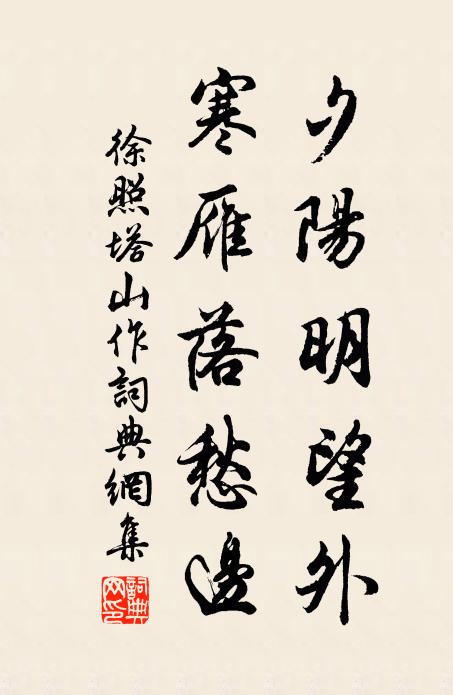 夕陽明望外
寒雁落愁邊
徐照塔山作詞典網集
詞典
网印